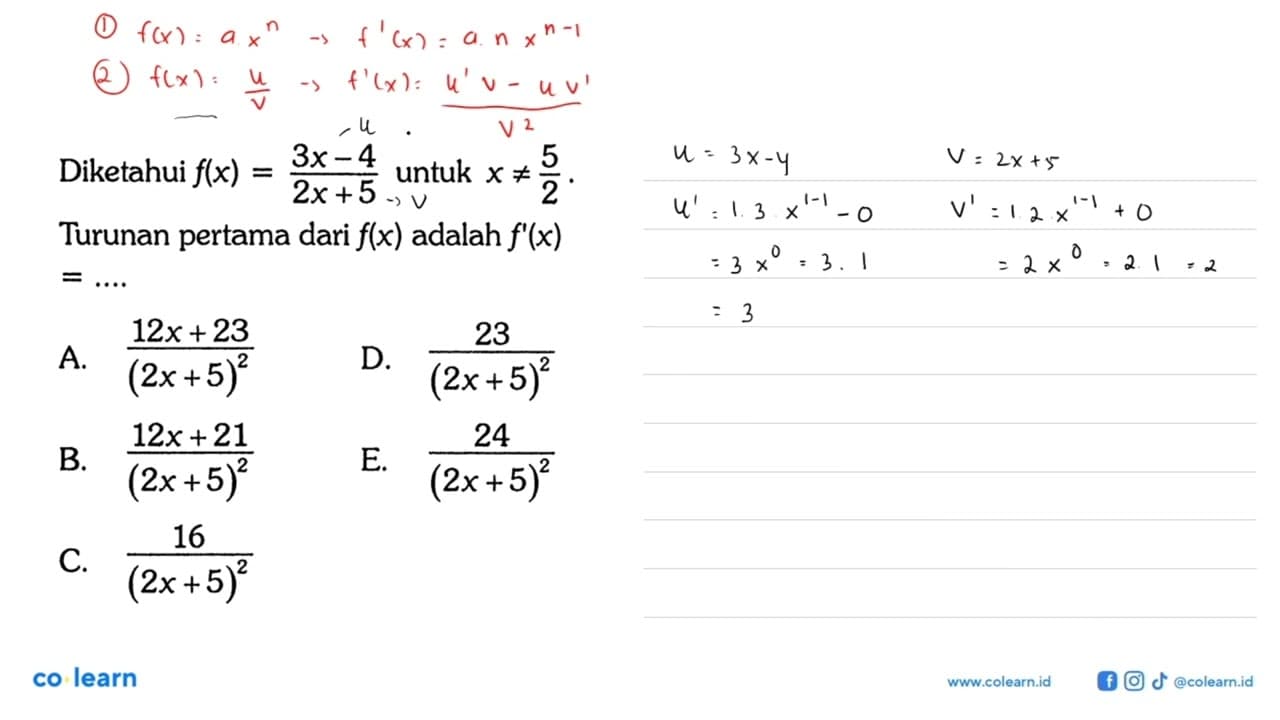 ① f(x) = a x^n → f'(x) = a. n x^{n-1}
② f(x) = u/v → f'(x) = (u'v - uv')/v²
u
Diketahui f(x) = (3x - 4)/(2x + 5) untuk x ≠ 5/2.
→ v
Turunan pertama dari f(x) adalah f'(x)
= ....
A. (12x + 23)/(2x + 5)²
D. 23/(2x + 5)²
B. (12x + 21)/(2x + 5)²
E. 24/(2x + 5)²
C. 16/(2x + 5)²
u = 3x - 4
u' = 1. 3. x^{1-1} - 0
= 3 x^0 = 3. 1
= 3
v = 2x + 5
v' = 1. 2. x^{1-1} + 0
= 2 x^0 = 2. 1 = 2
co learn
www.colearn.id
@colearn.id